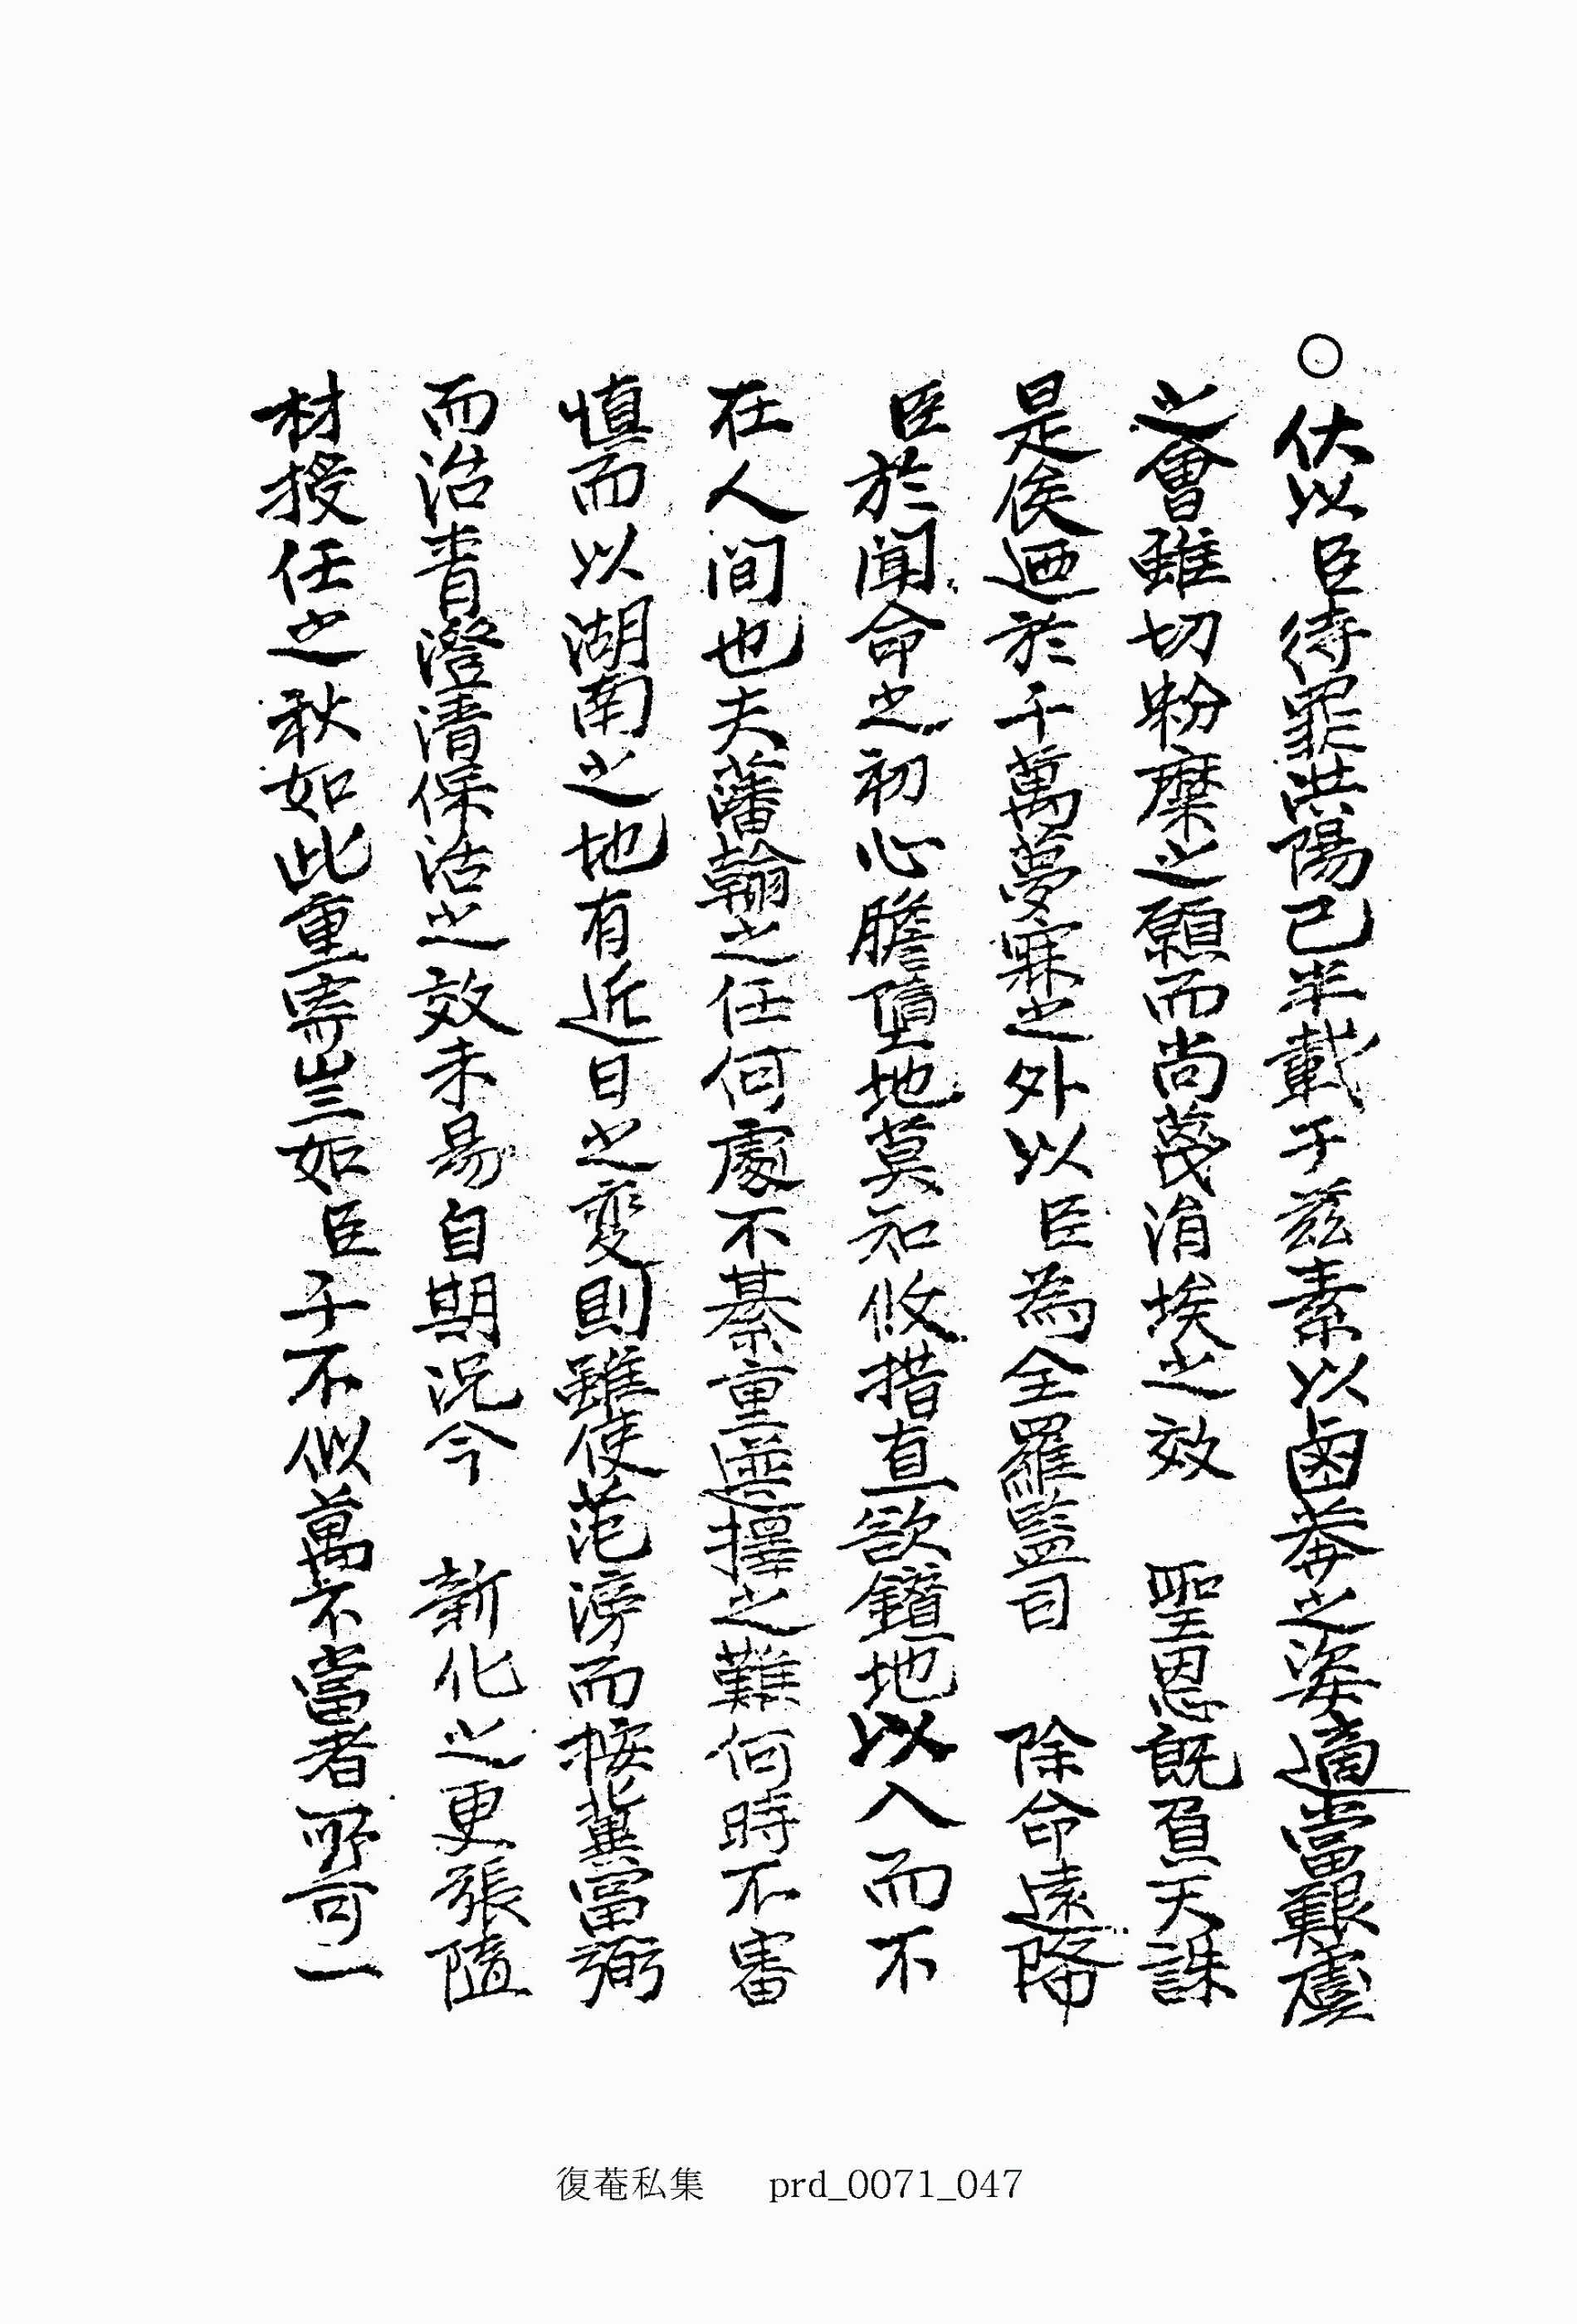 ○伏以臣待罪洪陽已半載于玆素以鹵莽之姿適當艱虞
之會雖切粉糜之願而尚蔑涓埃之效 聖恩旣負天誅
是俟迺於千萬夢寐之外以臣為全羅監司 除命遠降
臣於聞命之初心膽墮地莫知攸措直欲鑽地以入而不
在人間也夫藩翰之任何處不綦重遴擇之難何時不審
愼而以湖南之地有近日之変則雖使范滂而按冀富弼
而治靑澄清保活之效未易自期況今 新化之更張隨
材授任之秋如此重寄豈如臣千不似萬不當者所可一
復菴私集 prd_0071_047